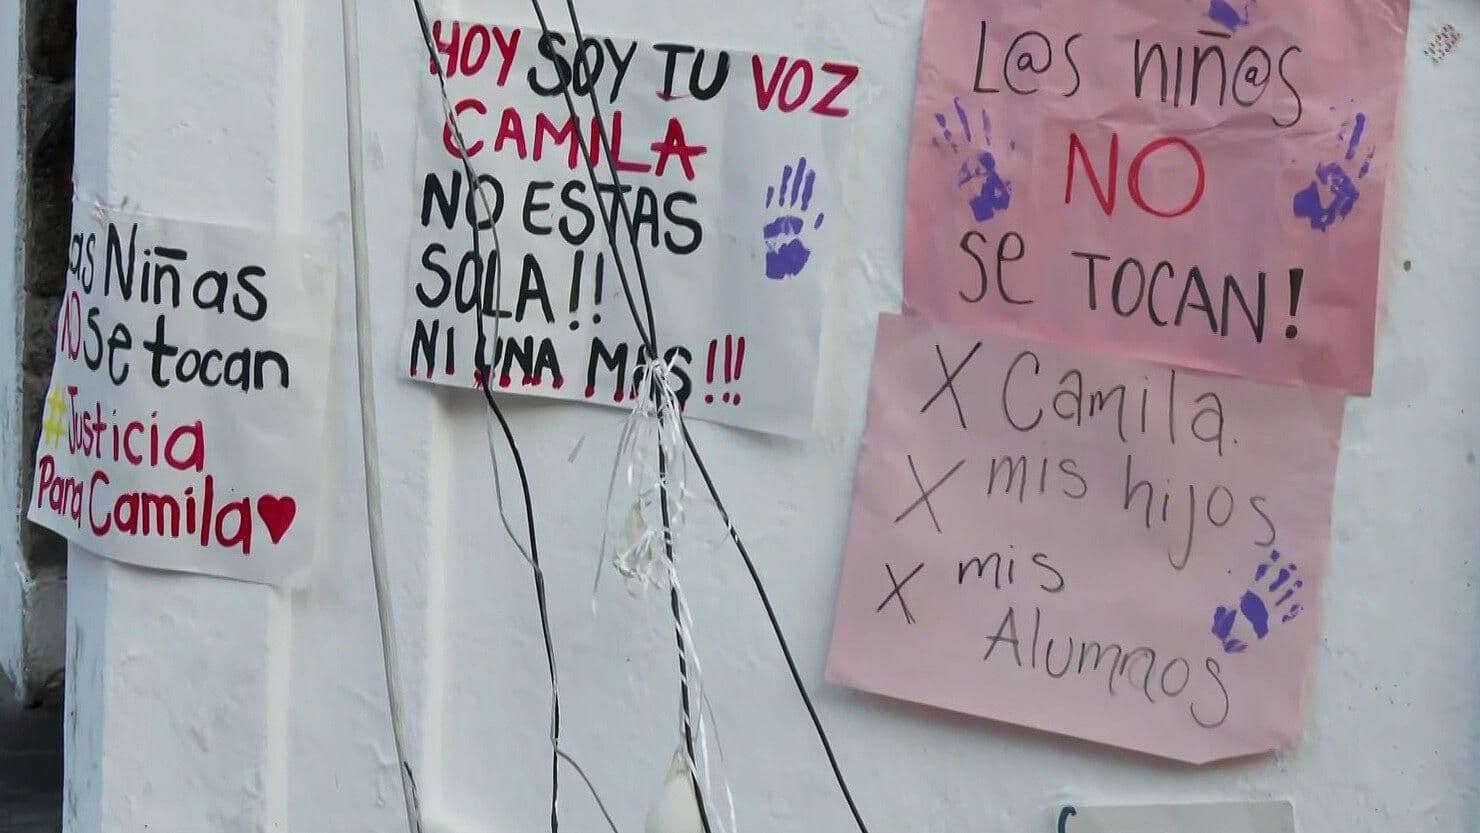 as Niñas
NO se tocan
#Justicia
Para Camila
HOY SOY TU VOZ
CAMILA
NO ESTAS
SOLA!!
NI UNA MAS!!!
L@s niñ@s
NO
Se TOCAN!
X Camila.
X mis hijos
X mis
Alumnos